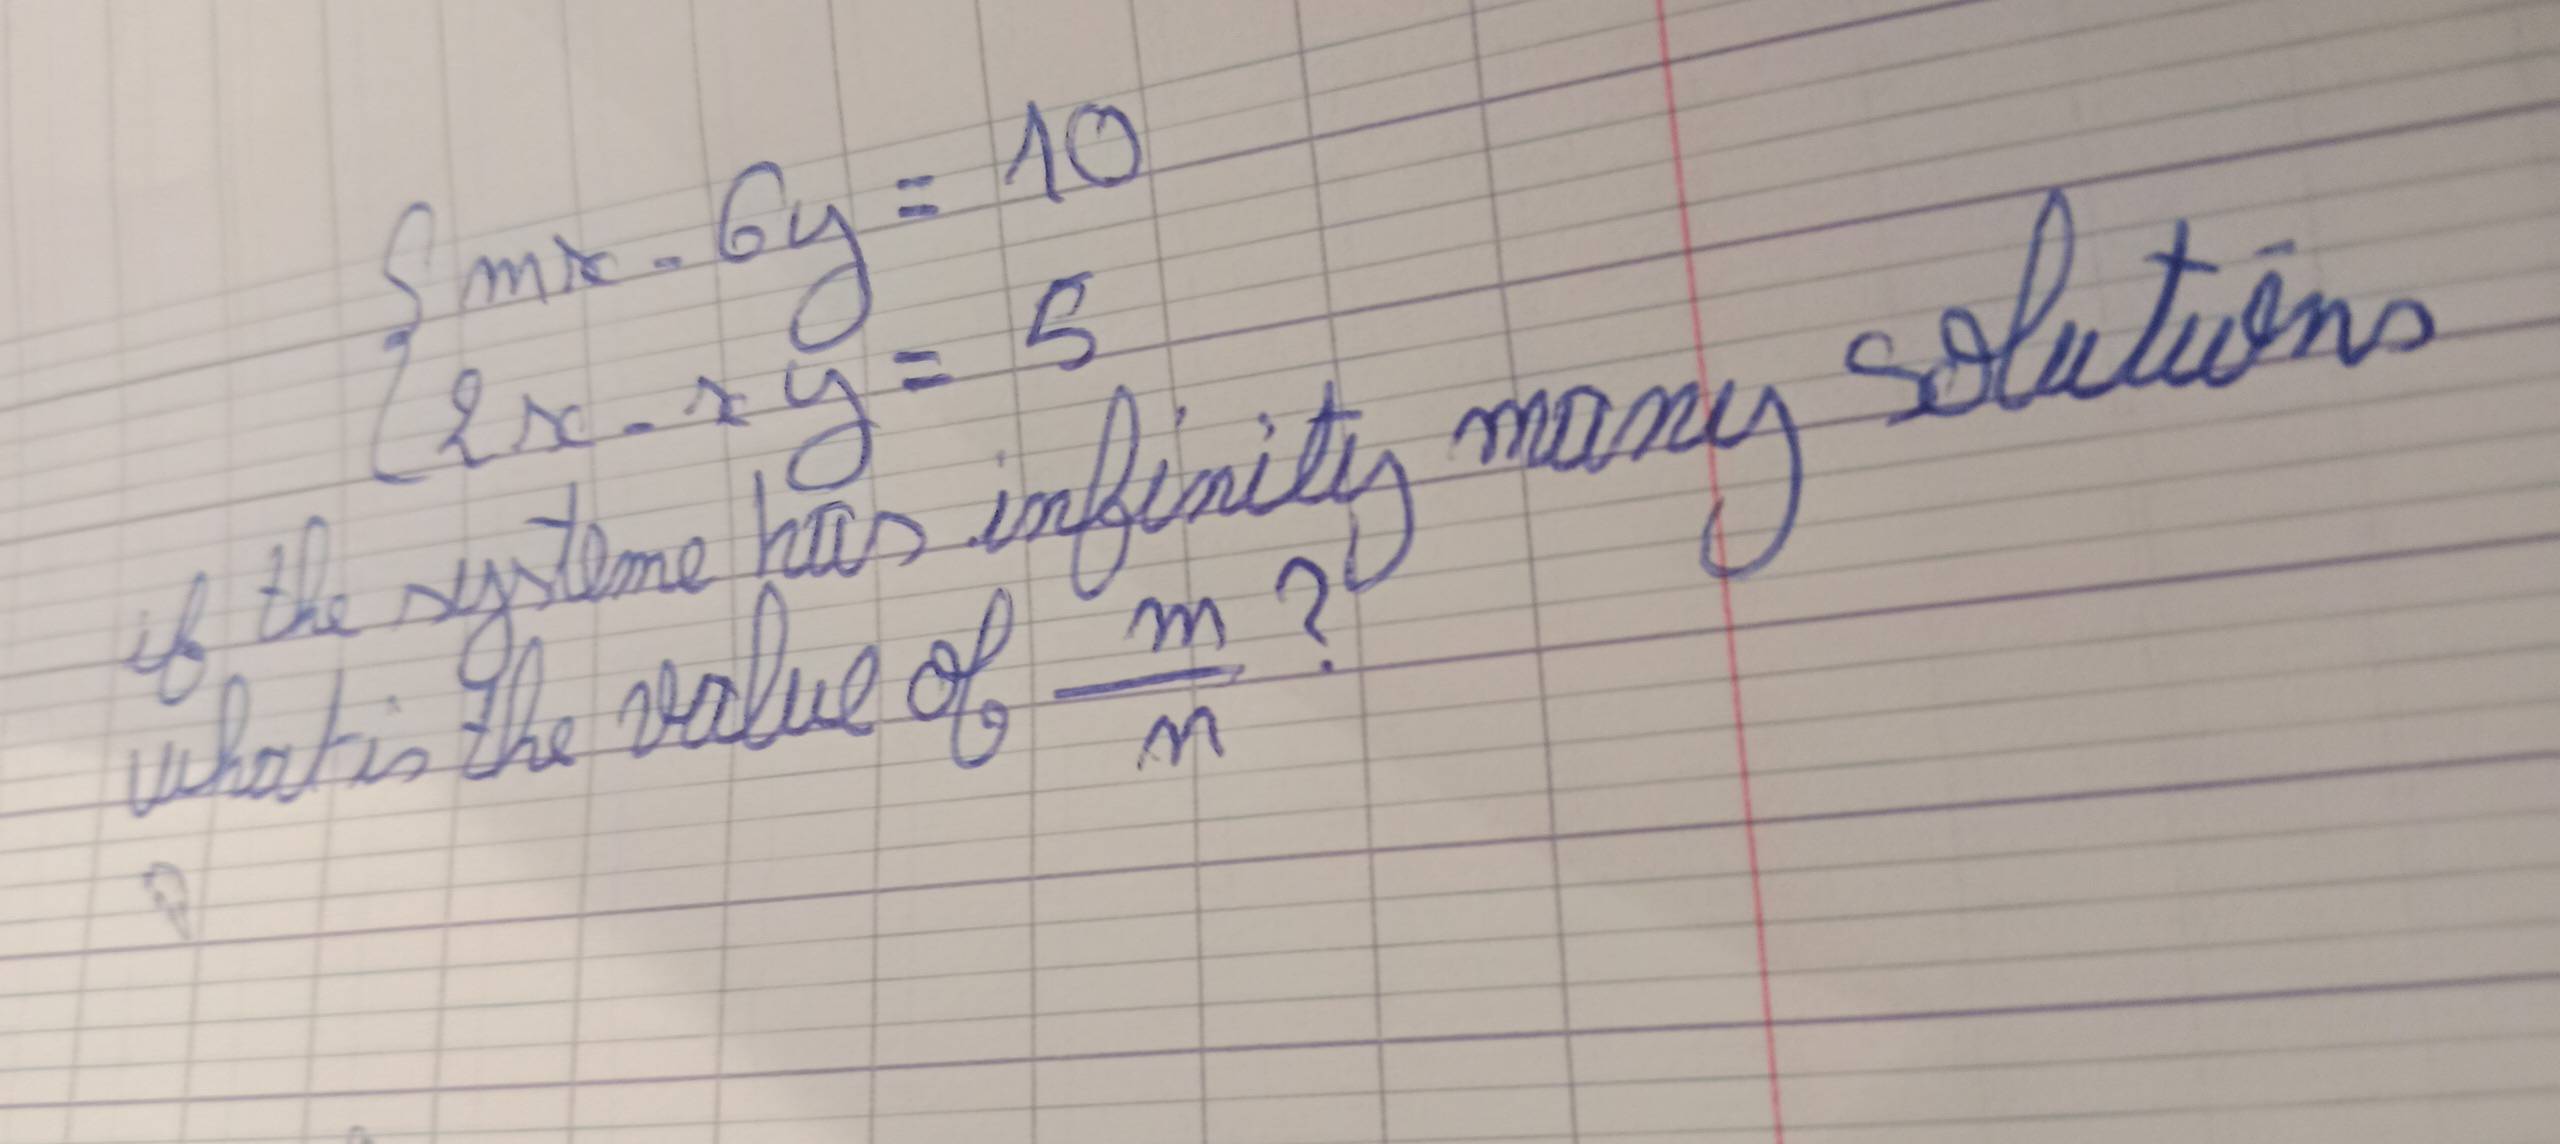 { mx - 6y = 10
2x - xy = 5
if the systeme has infinity many solutions
what is the value of m/n ?